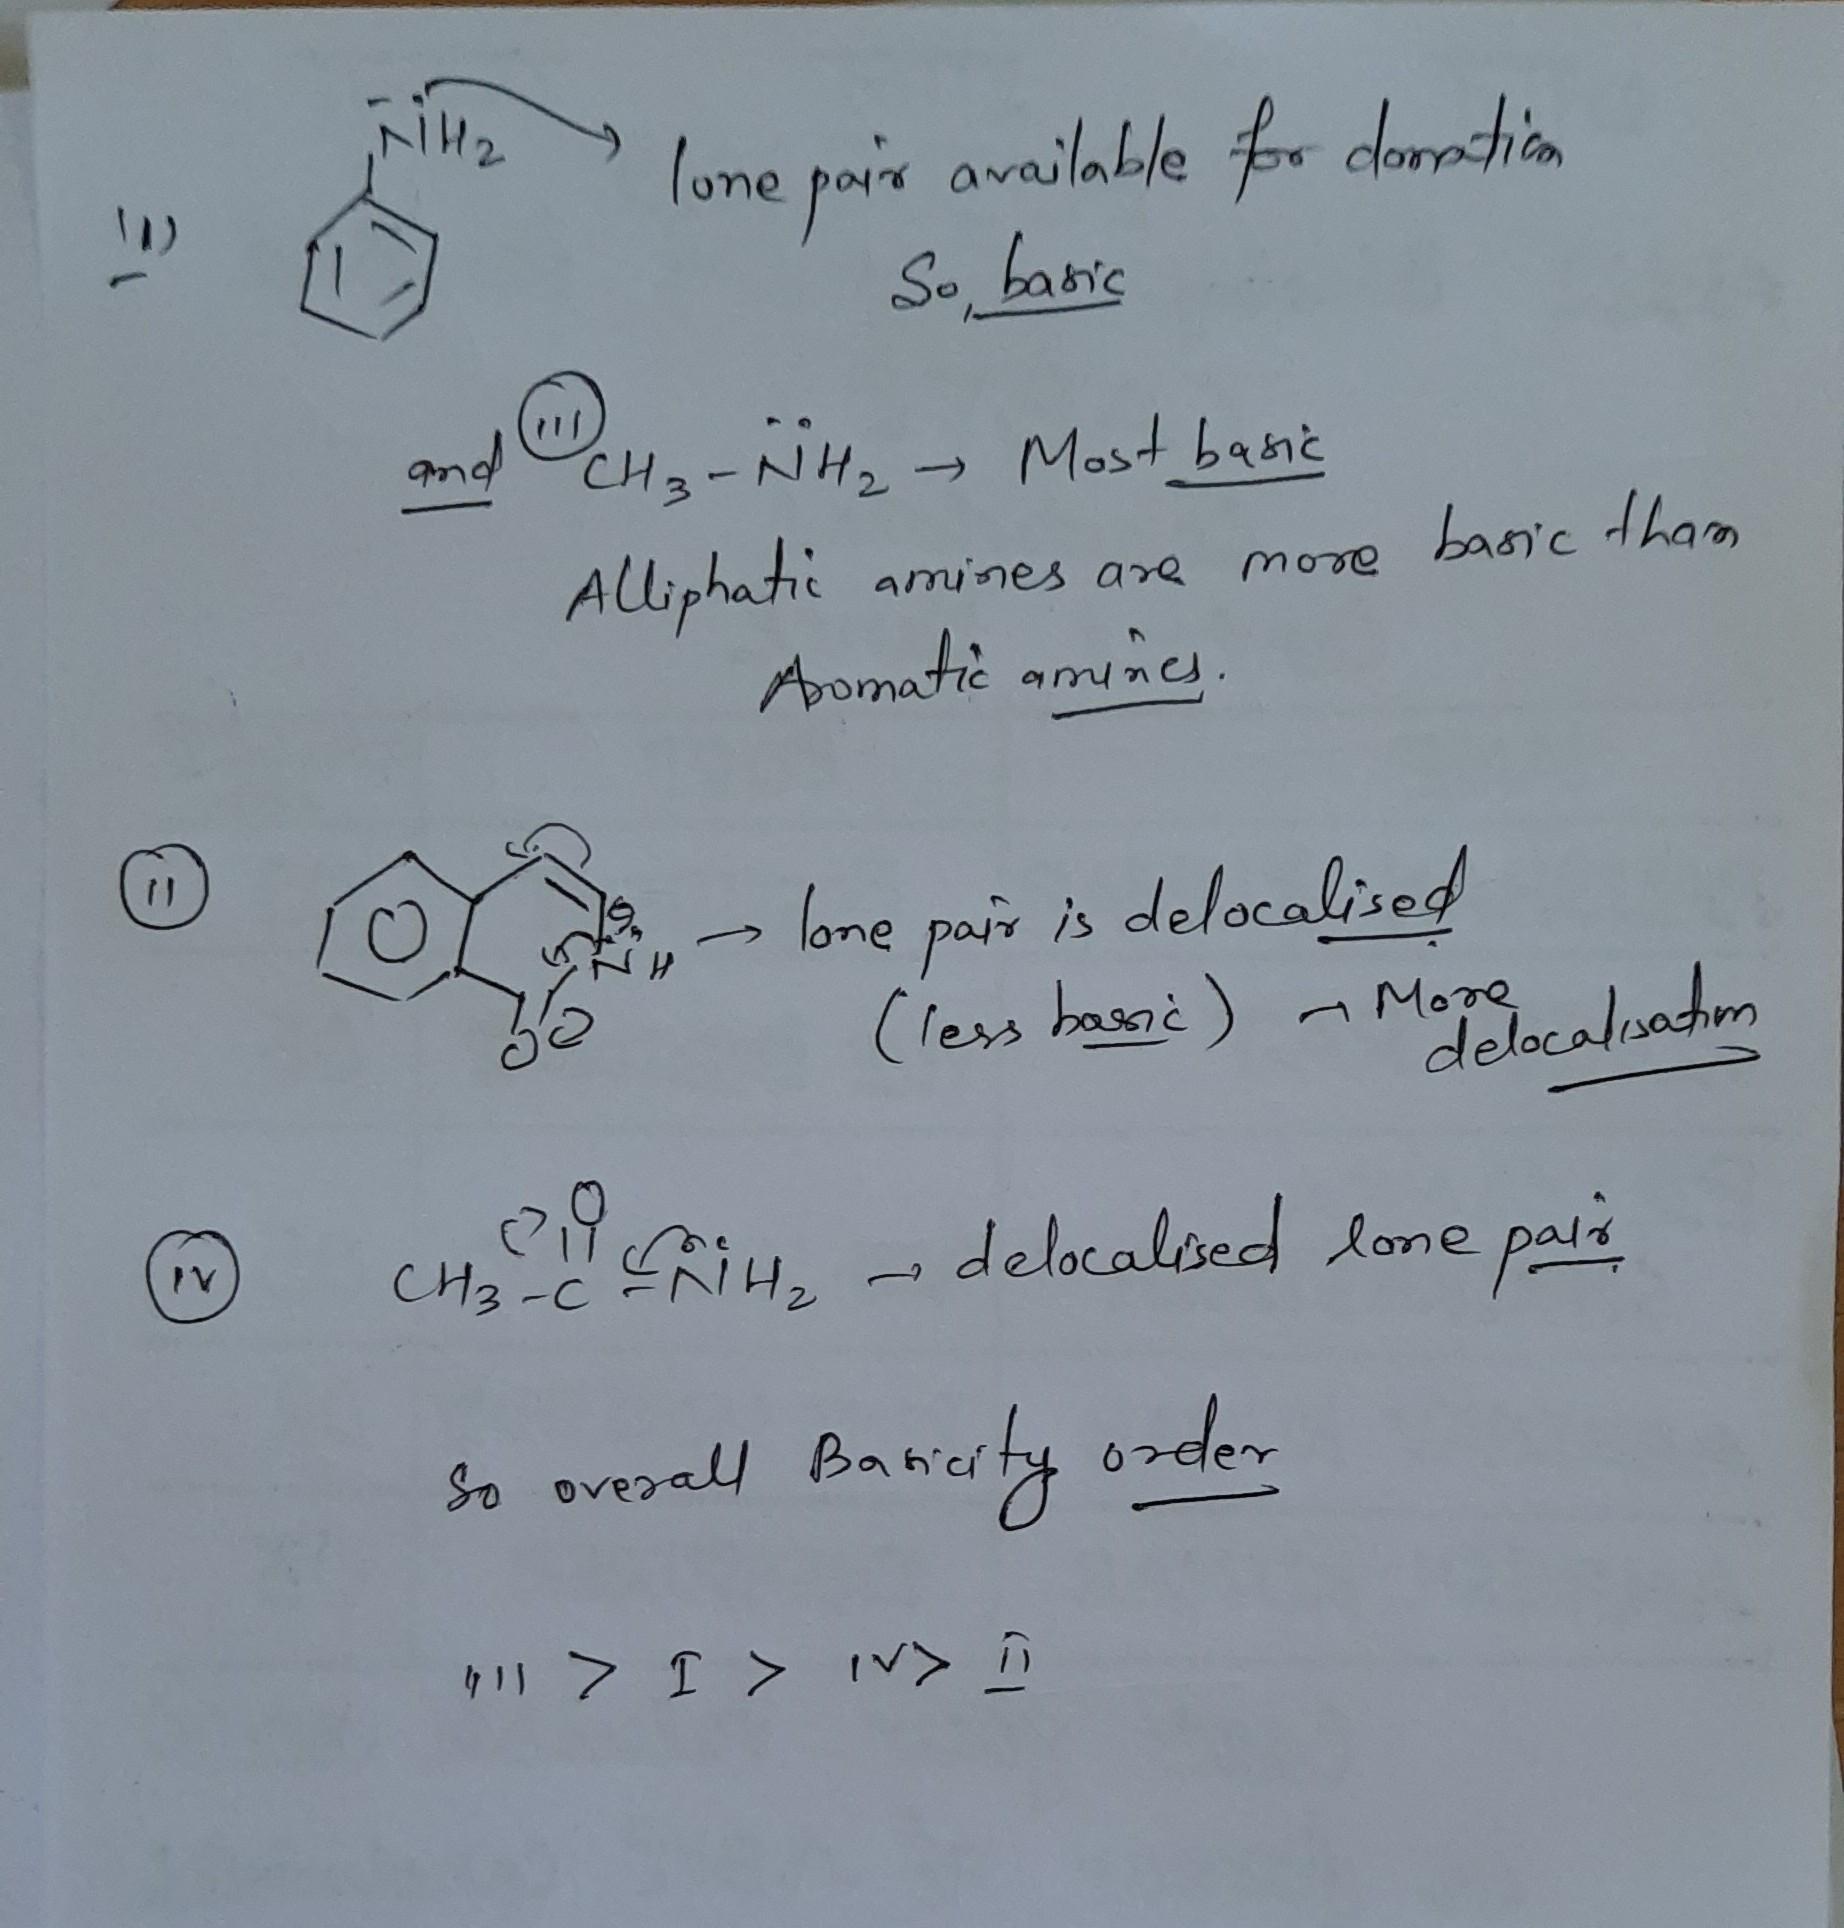 NH2
lone pair available for donation
So, basic
I)
and (iii) CH3-NH2 → Most basic
Alliphatic amines are more basic than
Aromatic amines.
(ii)
O
NH → lone pair is delocalised
(less basic) → More
delocalisation
O
(iv)
O
CH3-C-NH2 → delocalised lone pair
So overall Basicity order
III > I > IV > II